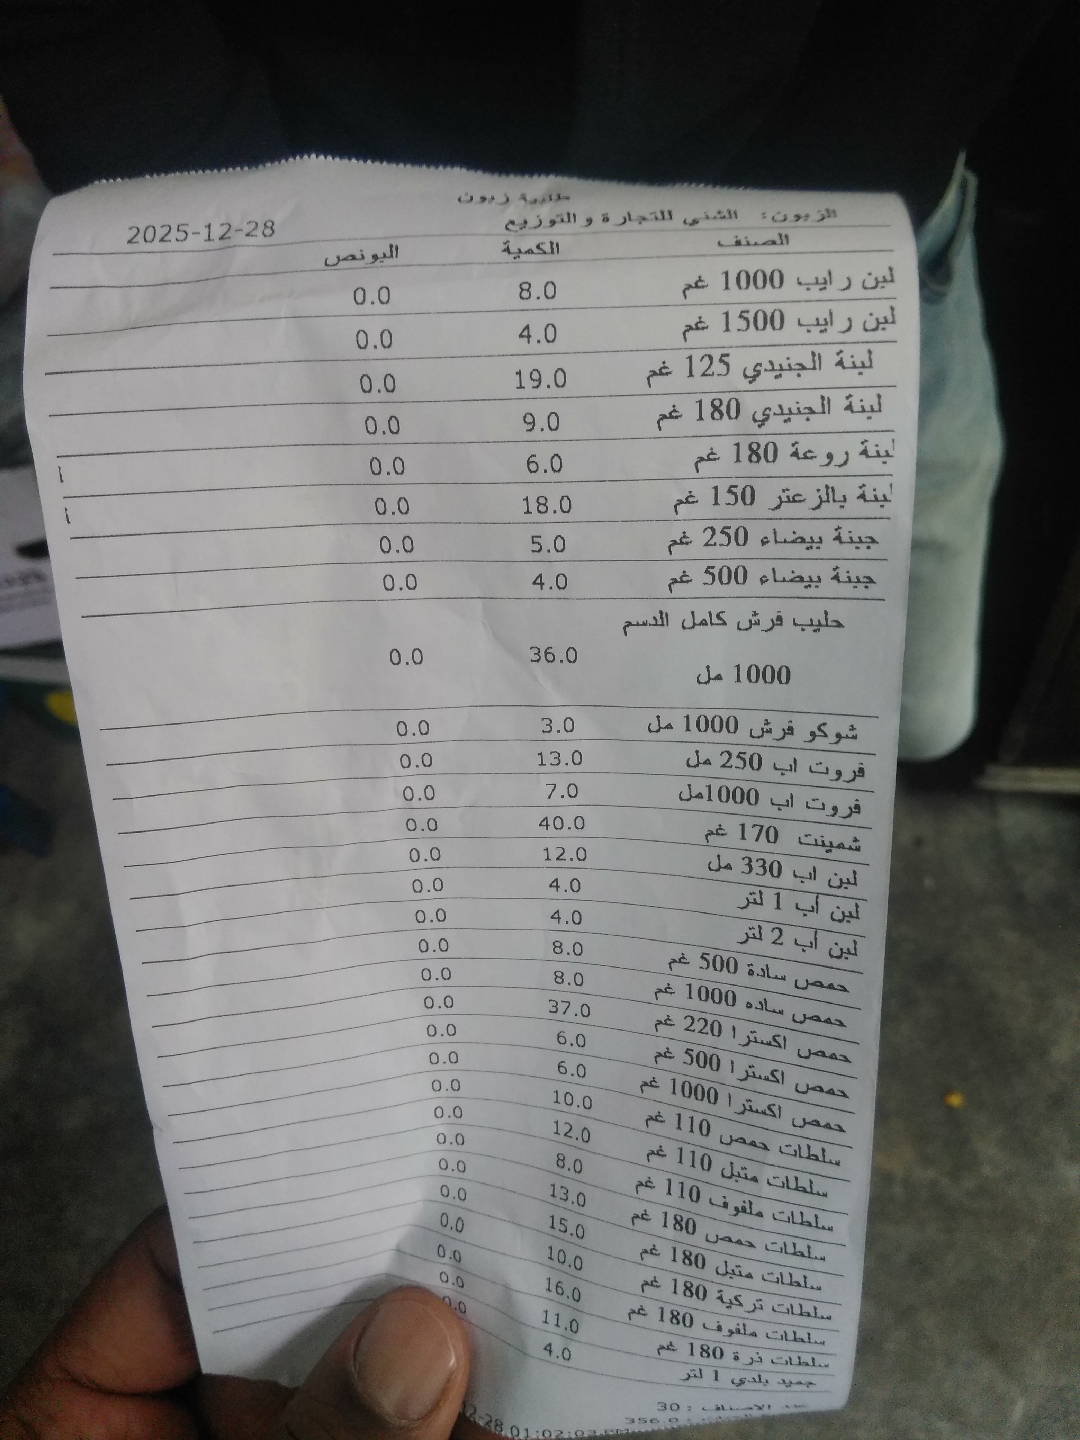 طلبية زبون
الزبون: الشني للتجارة والتوزيع 2025-12-28
الصنف الكمية البونص
لبن رايب 1000 غم 8.0 0.0
لبن رايب 1500 غم 4.0 0.0
لبنة الجنيدي 125 غم 19.0 0.0
لبنة الجنيدي 180 غم 9.0 0.0
لبنة روعة 180 غم 6.0 0.0
لبنة بالزعتر 150 غم 18.0 0.0
جبنة بيضاء 250 غم 5.0 0.0
جبنة بيضاء 500 غم 4.0 0.0
حليب فرش كامل الدسم
1000 مل 36.0 0.0
شوكو فرش 1000 مل 3.0 0.0
فروت اب 250 مل 13.0 0.0
فروت اب 1000مل 7.0 0.0
شمينت 170 غم 40.0 0.0
لبن اب 330 مل 12.0 0.0
لبن أب 1 لتر 4.0 0.0
لبن أب 2 لتر 4.0 0.0
حمص سادة 500 غم 8.0 0.0
حمص ساده 1000 غم 8.0 0.0
حمص اكسترا 220 غم 37.0 0.0
حمص اكسترا 500 غم 6.0 0.0
حمص اكسترا 1000 غم 6.0 0.0
سلطات حمص 110 غم 10.0 0.0
سلطات متبل 110 غم 12.0 0.0
سلطات ملفوف 110 غم 8.0 0.0
سلطات حمص 180 غم 13.0 0.0
سلطات متبل 180 غم 15.0 0.0
سلطات تركية 180 غم 10.0 0.0
سلطات ملفوف 180 غم 16.0 0.0
سلطات ذرة 180 غم 11.0 0.0
جميد بلدي 1 لتر 4.0 0.0
عدد الاصناف : 30
356.0 :
12-28 01:02:03 PM